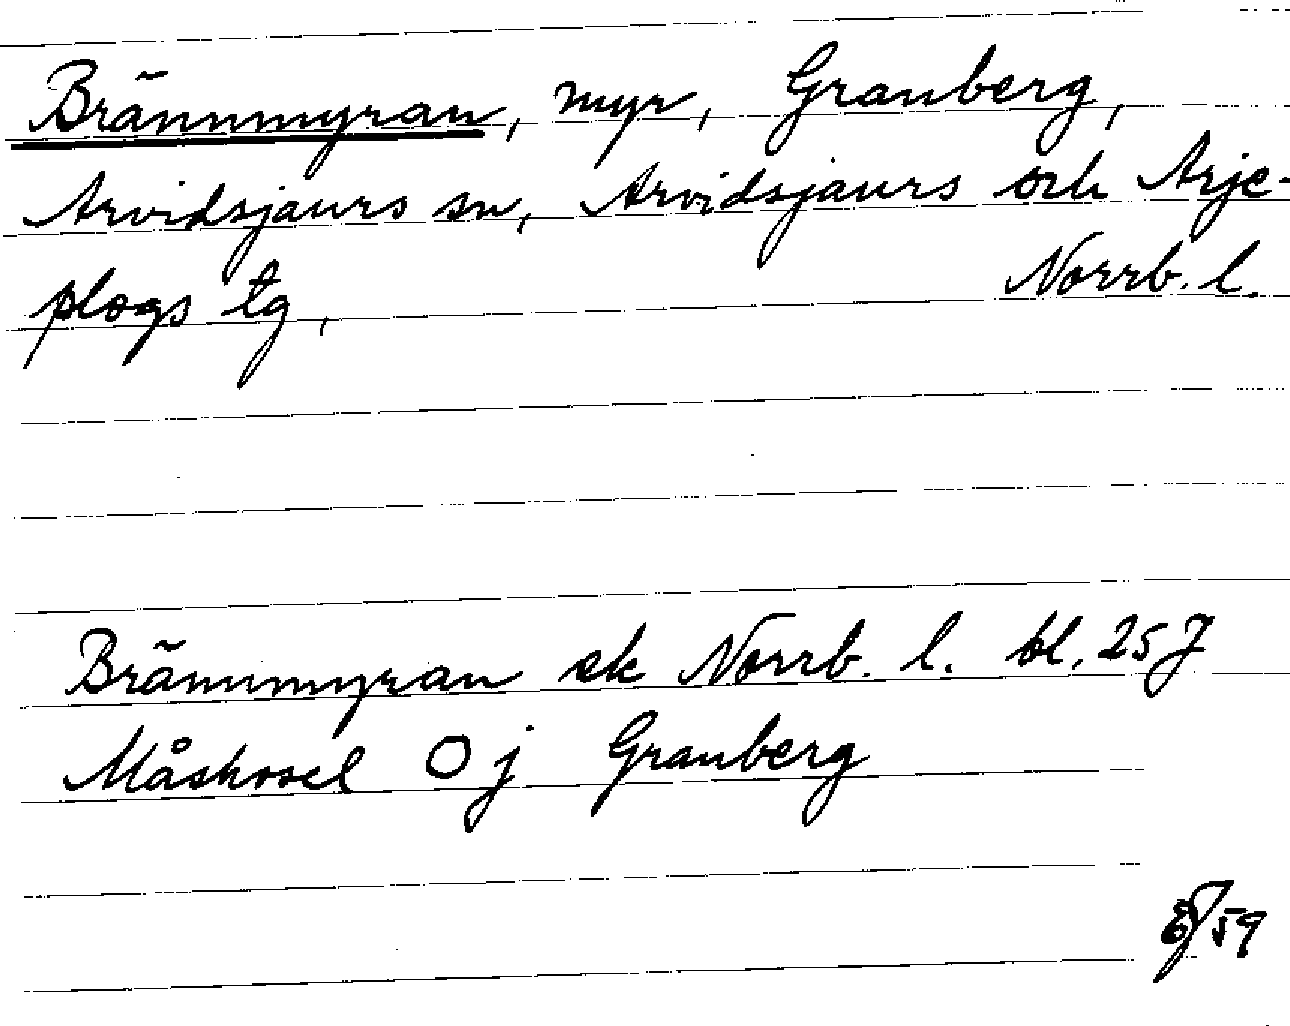 Brännmyran, myr, Granberg,
Arvidsjaurs sn, Arvidsjaurs och Arje-
plogs tg, Norrb. l.
Brännmyran ek Norrb. l. bl. 25 J
Måskosel O j Granberg
59